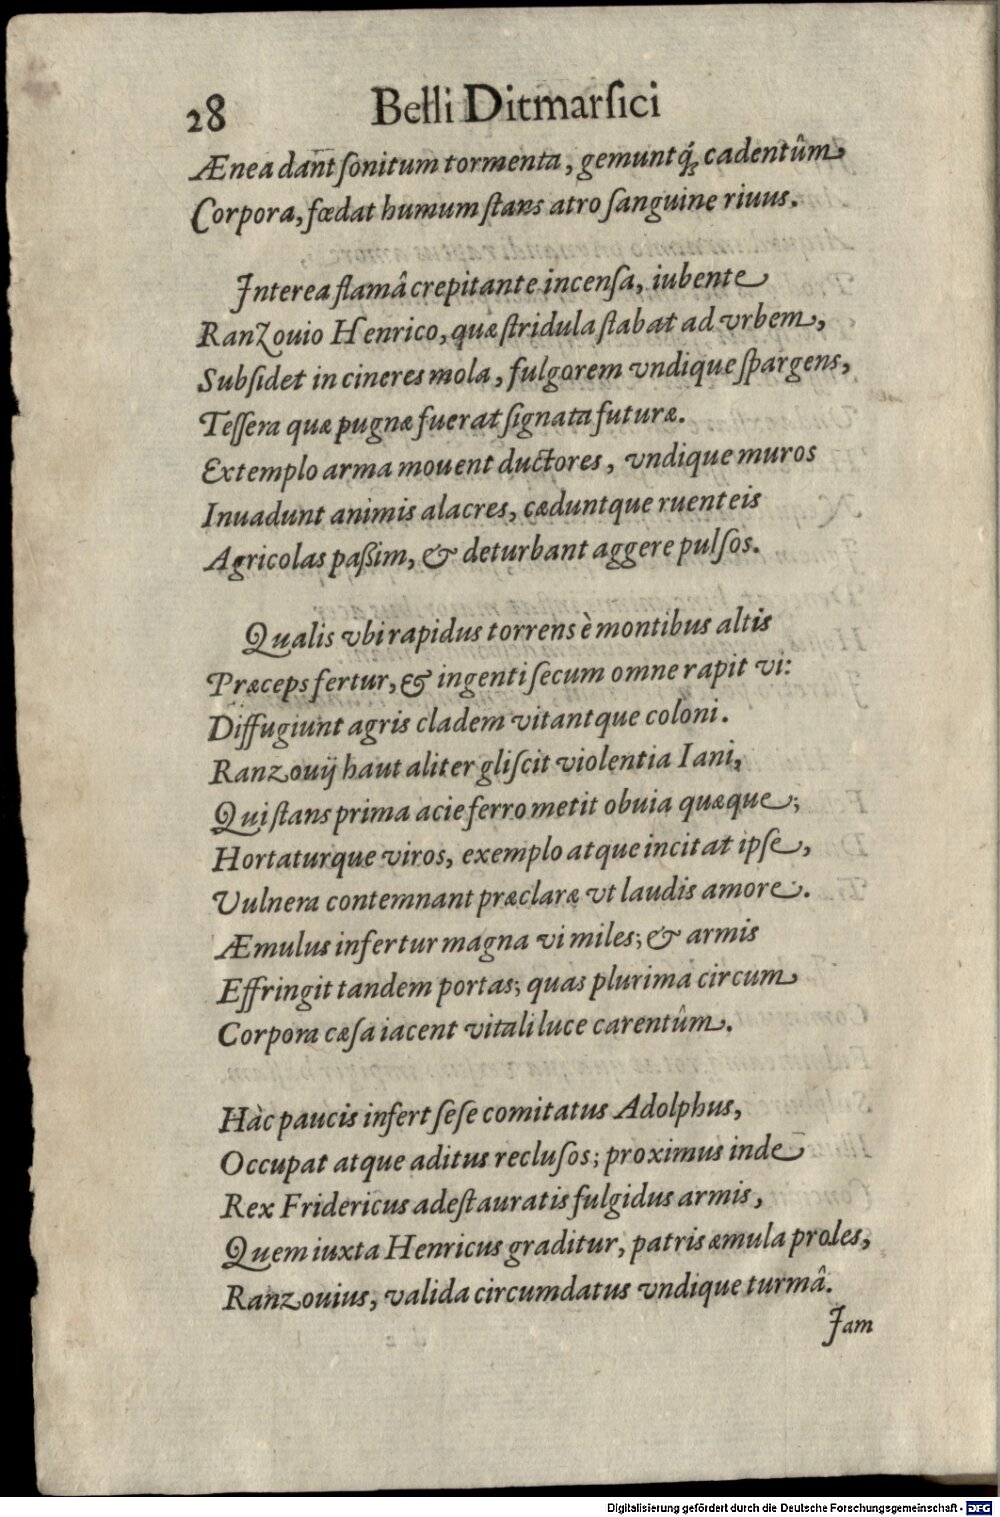 28 Belli Ditmarsici
Ænea dant sonitum tormenta, gemuntq́; cadentûm
Corpora, fœdat humum stans atro sanguine riuus.
Interea flamâ crepitante incensa, iubente
Ranzouio Henrico, quæ stridula stabat ad vrbem,
Subsidet in cineres mola, fulgorem vndique spargens,
Tessera quæ pugnæ fuerat signata futuræ.
Extemplo arma mouent ductores, vndique muros
Inuadunt animis alacres, cæduntque ruenteis
Agricolas paßim, & deturbant aggere pulsos.
Qualis vbi rapidus torrens è montibus altis
Præceps fertur, & ingenti secum omne rapit vi:
Diffugiunt agris cladem vitantque coloni.
Ranzouij haut aliter gliscit violentia Iani,
Qui stans prima acie ferro metit obuia quæque;
Hortaturque viros, exemplo atque incitat ipse,
Vulnera contemnant præclaræ vt laudis amore.
Æmulus infertur magna vi miles; & armis
Effringit tandem portas; quas plurima circum
Corpora cæsa iacent vitali luce carentûm.
Hàc paucis infert sese comitatus Adolphus,
Occupat atque aditus reclusos; proximus inde
Rex Fridericus adest auratis fulgidus armis,
Quem iuxta Henricus graditur, patris æmula proles,
Ranzouius, valida circumdatus vndique turmâ.
Jam
Digitalisierung gefördert durch die Deutsche Forschungsgemeinschaft - DFG